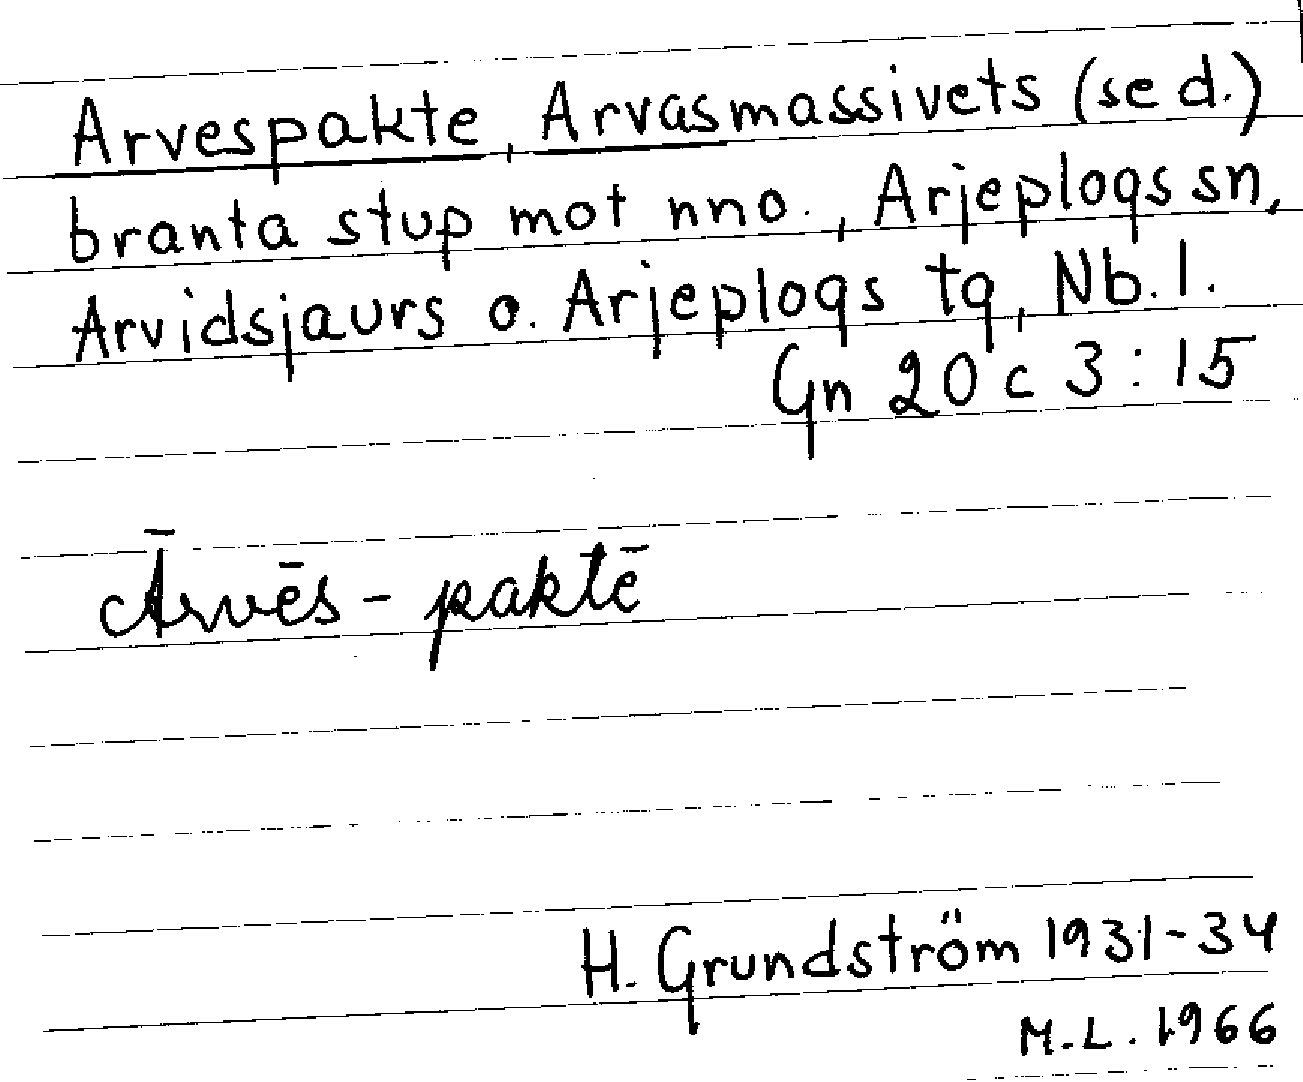 Arvespakte, Arvasmassivets (se d.)
branta stup mot nno., Arjeplogs sn,
Arvidsjaurs o. Arjeplogs tg, Nb. l.
Gn 20 c 3:15
Ārvēs-paktē
H. Grundström 1931-34
M.L. 1966